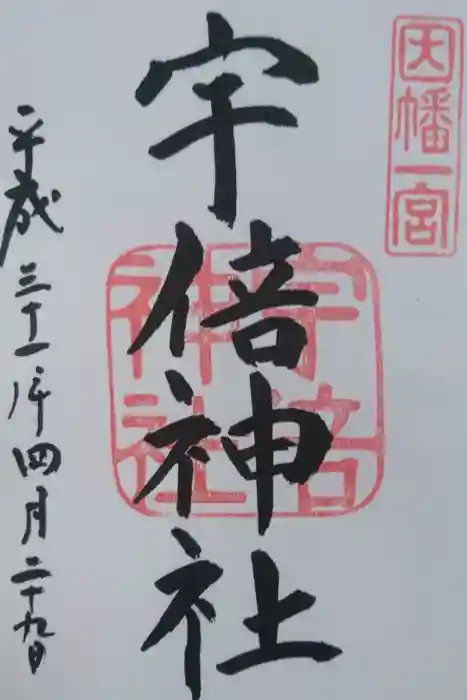 因幡一宮
宇倍神社
宇倍
神社
平成三十一年四月二十九日